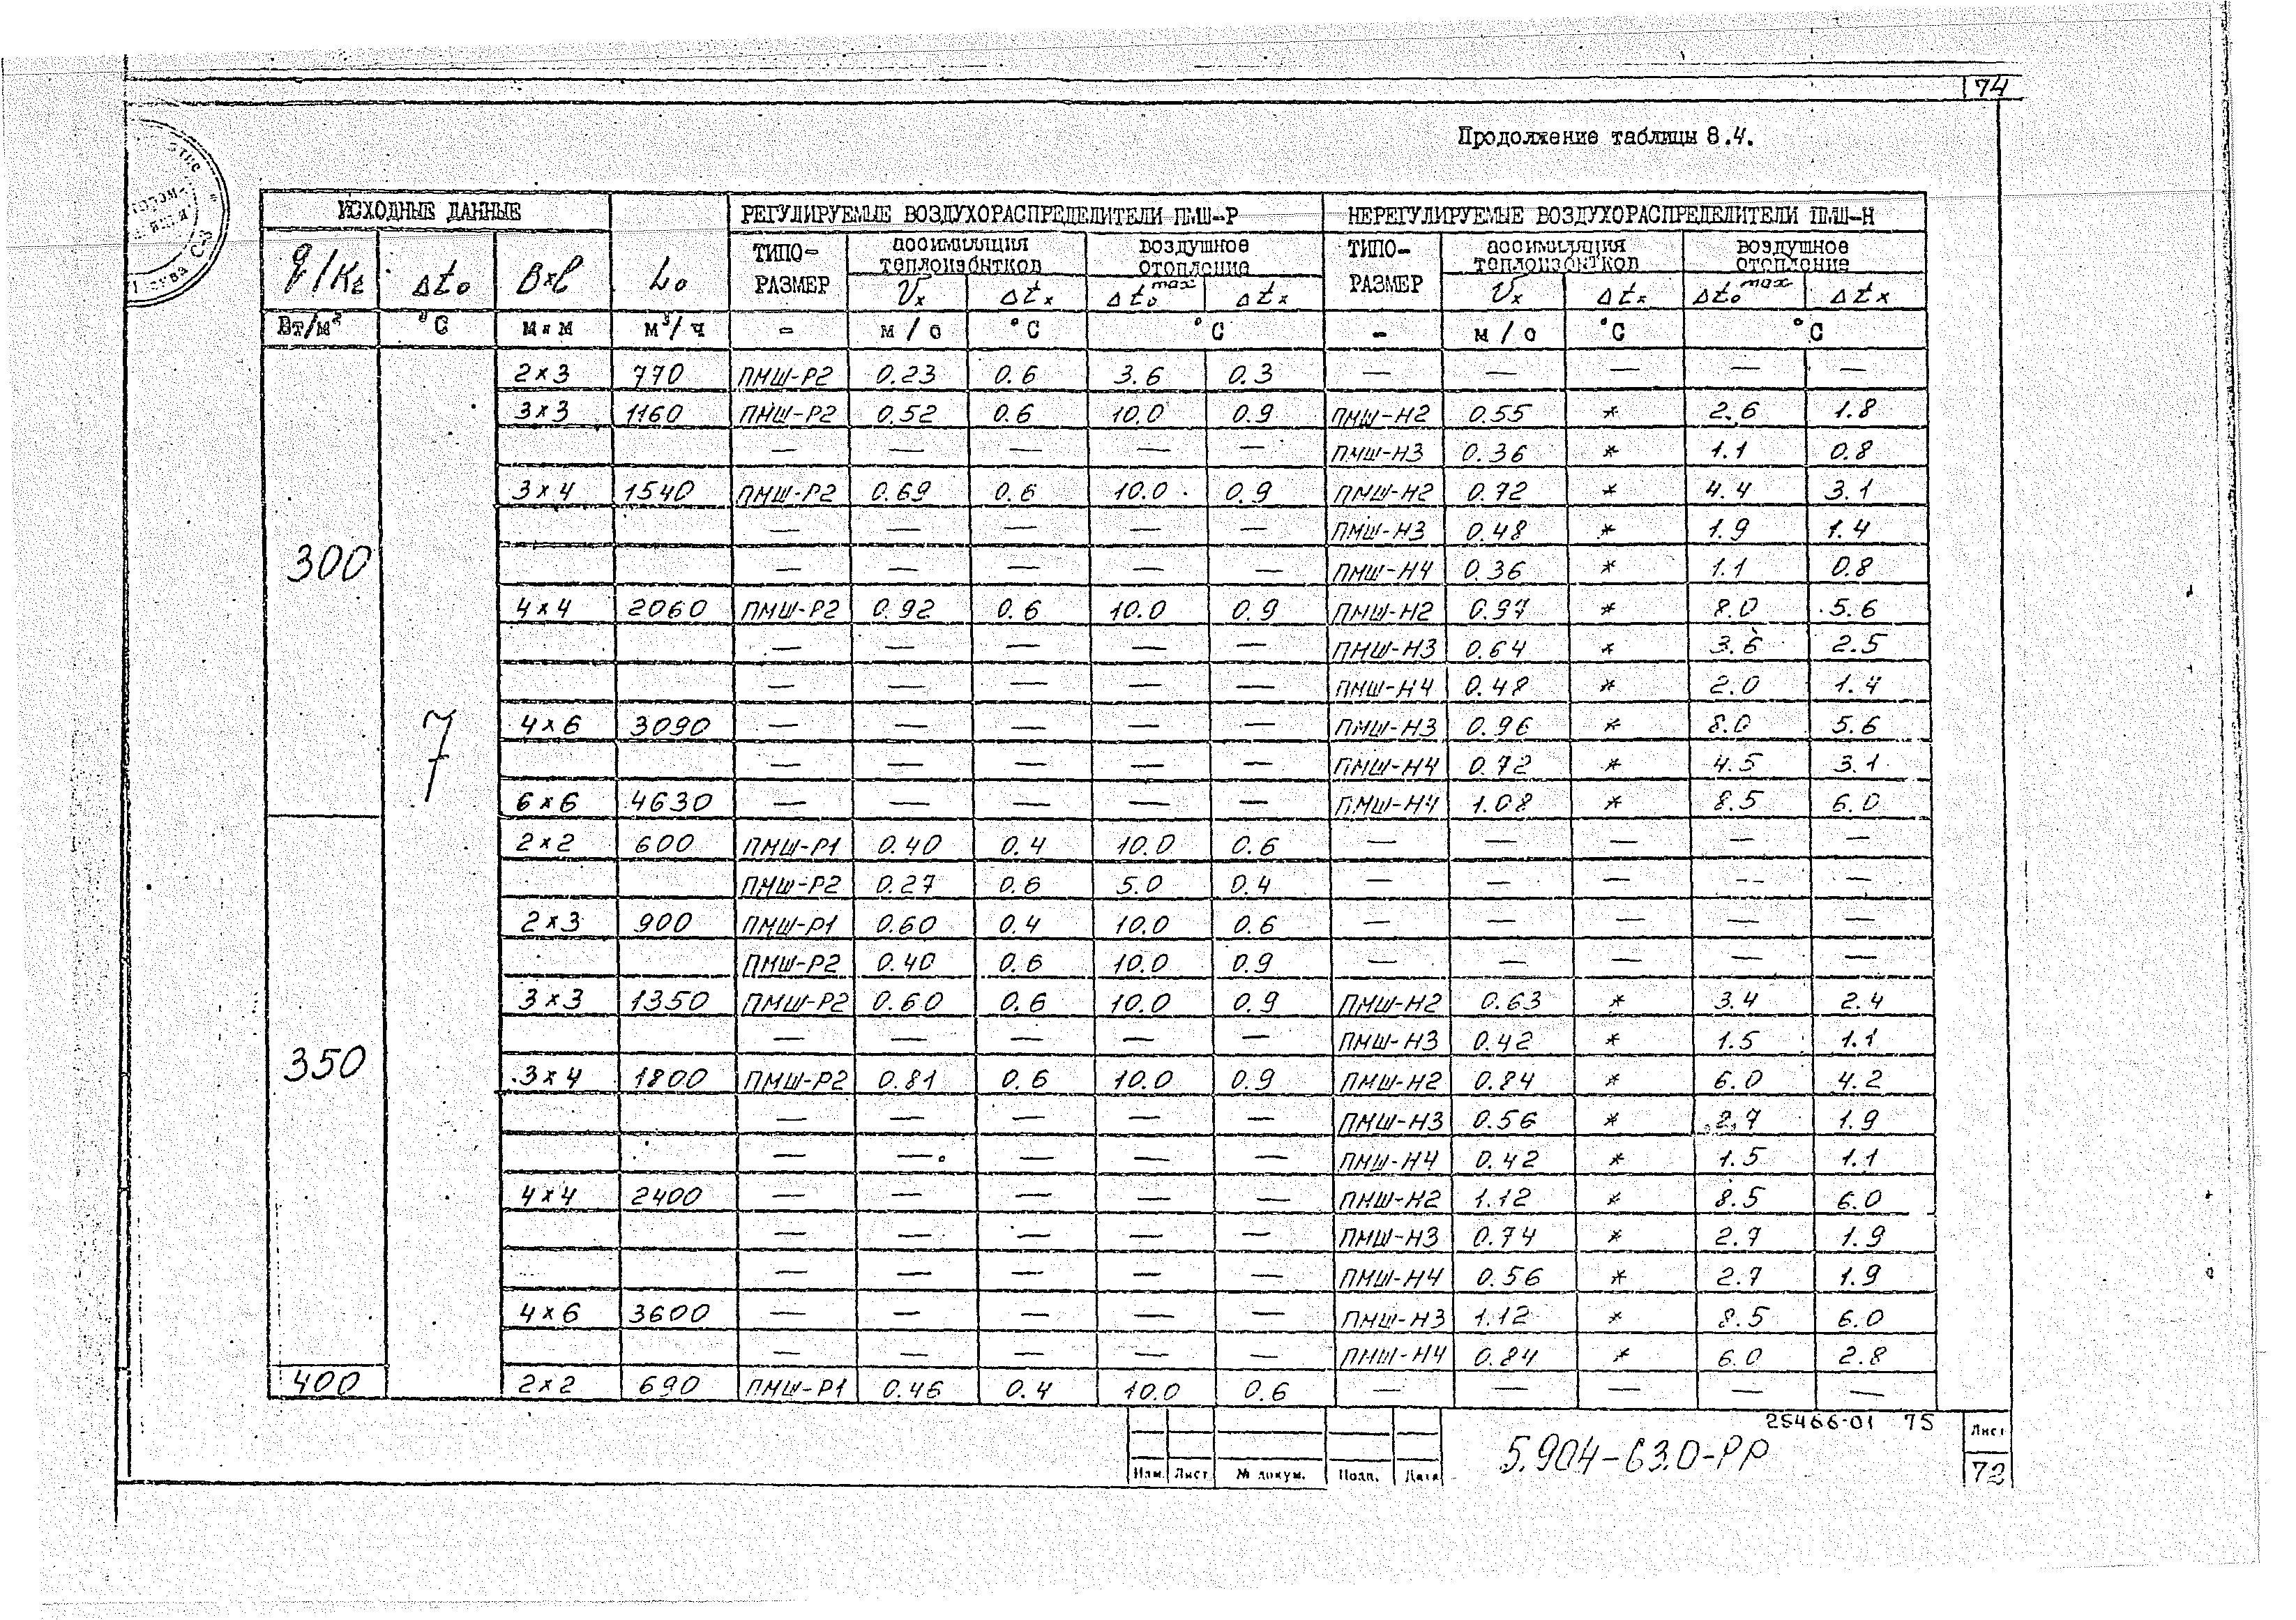 74
Продолжение таблицы 8.4.
ИСХОДНЫЕ ДАННЫЕ | | РЕГУЛИРУЕМЫЕ ВОЗДУХОРАСПРЕДЕЛИТЕЛИ ПМШ-Р | НЕРЕГУЛИРУЕМЫЕ ВОЗДУХОРАСПРЕДЕЛИТЕЛИ ПМШ-Н
q/Kг | Δt₀ | B×ℓ | L₀ | ТИПО-РАЗМЕР | АССИМИЛЯЦИЯ ТЕПЛОИЗБЫТКОВ | ВОЗДУШНОЕ ОТОПЛЕНИЕ | ТИПО-РАЗМЕР | АССИМИЛЯЦИЯ ТЕПЛОИЗБЫТКОВ | ВОЗДУШНОЕ ОТОПЛЕНИЕ
Vx | Δtx | Δt₀max | Δtx | Vx | Δtx | Δt₀max | Δtx
Вт/м² | °С | м×м | м³/ч | - | м/с | °С | °С | - | м/с | °С | °С
300 | 7 | 2×3 | 770 | ПМШ-Р2 | 0.23 | 0.6 | 3.6 | 0.3 | — | — | — | — | —
3×3 | 1160 | ПМШ-Р2 | 0.52 | 0.6 | 10.0 | 0.9 | ПМШ-Н2 | 0.55 | * | 2.6 | 1.8
— | — | — | — | — | ПМШ-Н3 | 0.36 | * | 1.1 | 0.8
3×4 | 1540 | ПМШ-Р2 | 0.69 | 0.6 | 10.0 | 0.9 | ПМШ-Н2 | 0.72 | * | 4.4 | 3.1
— | — | — | — | — | ПМШ-Н3 | 0.48 | * | 1.9 | 1.4
— | — | — | — | — | ПМШ-Н4 | 0.36 | * | 1.1 | 0.8
4×4 | 2060 | ПМШ-Р2 | 0.92 | 0.6 | 10.0 | 0.9 | ПМШ-Н2 | 0.97 | * | 8.0 | 5.6
— | — | — | — | — | ПМШ-Н3 | 0.64 | * | 3.6 | 2.5
— | — | — | — | — | ПМШ-Н4 | 0.48 | * | 2.0 | 1.4
4×6 | 3090 | — | — | — | — | — | ПМШ-Н3 | 0.96 | * | 8.0 | 5.6
— | — | — | — | — | ПМШ-Н4 | 0.72 | * | 4.5 | 3.1
6×6 | 4630 | — | — | — | — | — | ПМШ-Н4 | 1.08 | * | 8.5 | 6.0
350 | 2×2 | 600 | ПМШ-Р1 | 0.40 | 0.4 | 10.0 | 0.6 | — | — | — | — | —
ПМШ-Р2 | 0.27 | 0.6 | 5.0 | 0.4 | — | — | — | — | —
2×3 | 900 | ПМШ-Р1 | 0.60 | 0.4 | 10.0 | 0.6 | — | — | — | — | —
ПМШ-Р2 | 0.40 | 0.6 | 10.0 | 0.9 | — | — | — | — | —
3×3 | 1350 | ПМШ-Р2 | 0.60 | 0.6 | 10.0 | 0.9 | ПМШ-Н2 | 0.63 | * | 3.4 | 2.4
— | — | — | — | — | ПМШ-Н3 | 0.42 | * | 1.5 | 1.1
3×4 | 1800 | ПМШ-Р2 | 0.81 | 0.6 | 10.0 | 0.9 | ПМШ-Н2 | 0.84 | * | 6.0 | 4.2
— | — | — | — | — | ПМШ-Н3 | 0.56 | * | 2.7 | 1.9
— | — | — | — | — | ПМШ-Н4 | 0.42 | * | 1.5 | 1.1
4×4 | 2400 | — | — | — | — | — | ПМШ-Н2 | 1.12 | * | 8.5 | 6.0
— | — | — | — | — | ПМШ-Н3 | 0.74 | * | 2.7 | 1.9
— | — | — | — | — | ПМШ-Н4 | 0.56 | * | 2.7 | 1.9
4×6 | 3600 | — | — | — | — | — | ПМШ-Н3 | 1.12 | * | 8.5 | 6.0
— | — | — | — | — | ПМШ-Н4 | 0.84 | * | 6.0 | 2.8
400 | 2×2 | 690 | ПМШ-Р1 | 0.46 | 0.4 | 10.0 | 0.6 | — | — | — | — | —
25466-01 75
Изм. Лист № докум. Подп. Дата
5.904-63.0-РР
Лист
72